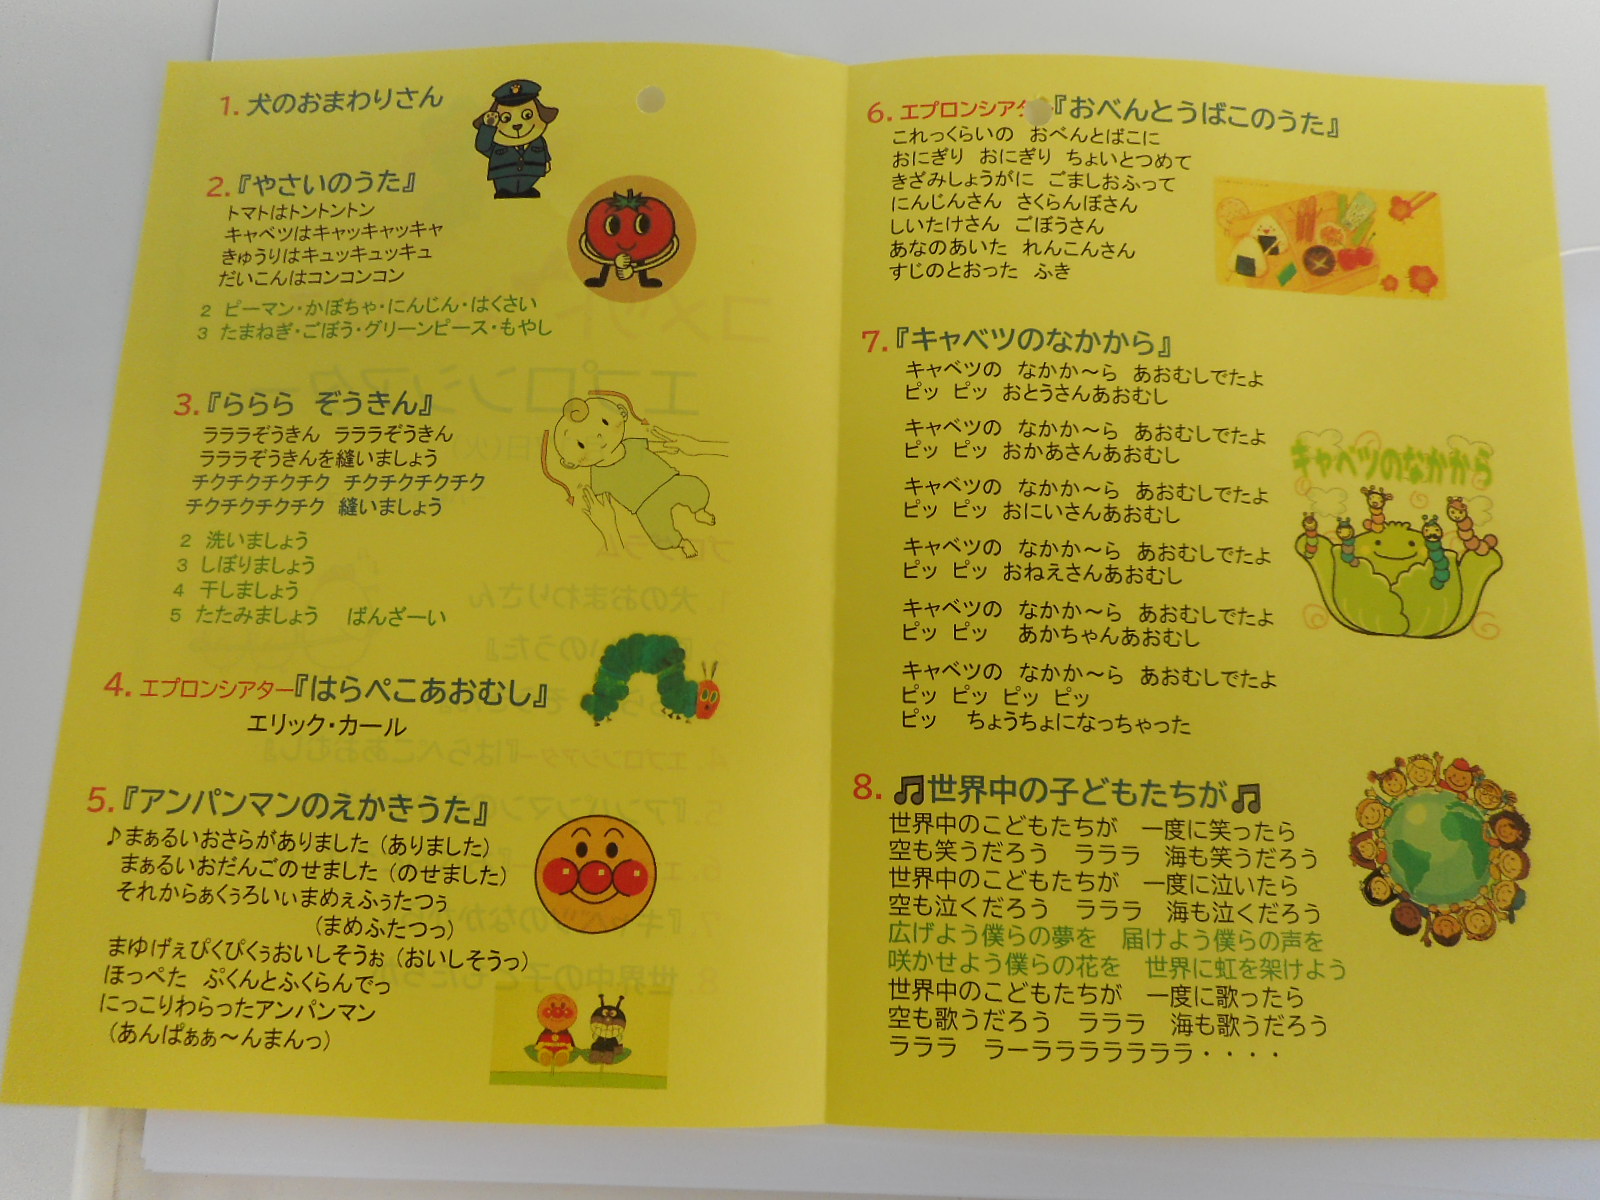 1. 犬のおまわりさん
2. 『やさいのうた』
トマトはトントントン
キャベツはキャッキャッキャ
きゅうりはキュッキュッキュ
だいこんはコンコンコン
2 ピーマン・かぼちゃ・にんじん・はくさい
3 たまねぎ・ごぼう・グリーンピース・もやし
3. 『ららら ぞうきん』
ラララぞうきん ラララぞうきん
ラララぞうきんを縫いましょう
チクチクチクチク チクチクチクチク
チクチクチクチク 縫いましょう
2 洗いましょう
3 しぼりましょう
4 干しましょう
5 たたみましょう ばんざーい
4. エプロンシアター『はらぺこあおむし』
エリック・カール
5. 『アンパンマンのえかきうた』
♪まぁるいおさらがありました(ありました)
まぁるいおだんごのせました(のせました)
それからぁくぅろいぃまめぇふぅたつぅ
(まめふたつっ)
まゆげぇぴくぴくぅおいしそうぉ(おいしそうっ)
ほっぺた ぷくんとふくらんでっ
にっこりわらったアンパンマン
(あんぱぁぁ～んまんっ)
6. エプロンシアター『おべんとうばこのうた』
これっくらいの おべんとばこに
おにぎり おにぎり ちょいとつめて
きざみしょうがに ごましおふって
にんじんさん さくらんぼさん
しいたけさん ごぼうさん
あなのあいた れんこんさん
すじのとおった ふき
7. 『キャベツのなかから』
キャベツの なかか～ら あおむしでたよ
ピッ ピッ おとうさんあおむし
キャベツの なかか～ら あおむしでたよ
ピッ ピッ おかあさんあおむし
キャベツの なかか～ら あおむしでたよ
ピッ ピッ おにいさんあおむし
キャベツの なかか～ら あおむしでたよ
ピッ ピッ おねえさんあおむし
キャベツの なかか～ら あおむしでたよ
ピッ ピッ あかちゃんあおむし
キャベツの なかか～ら あおむしでたよ
ピッ ピッ ピッ ピッ
ピッ ちょうちょになっちゃった
キャベツのなかから
8. 🎵世界中の子どもたちが🎵
世界中のこどもたちが 一度に笑ったら
空も笑うだろう ラララ 海も笑うだろう
世界中のこどもたちが 一度に泣いたら
空も泣くだろう ラララ 海も泣くだろう
広げよう僕らの夢を 届けよう僕らの声を
咲かせよう僕らの花を 世界に虹を架けよう
世界中のこどもたちが 一度に歌ったら
空も歌うだろう ラララ 海も歌うだろう
ラララ ラーラララララララ・・・・